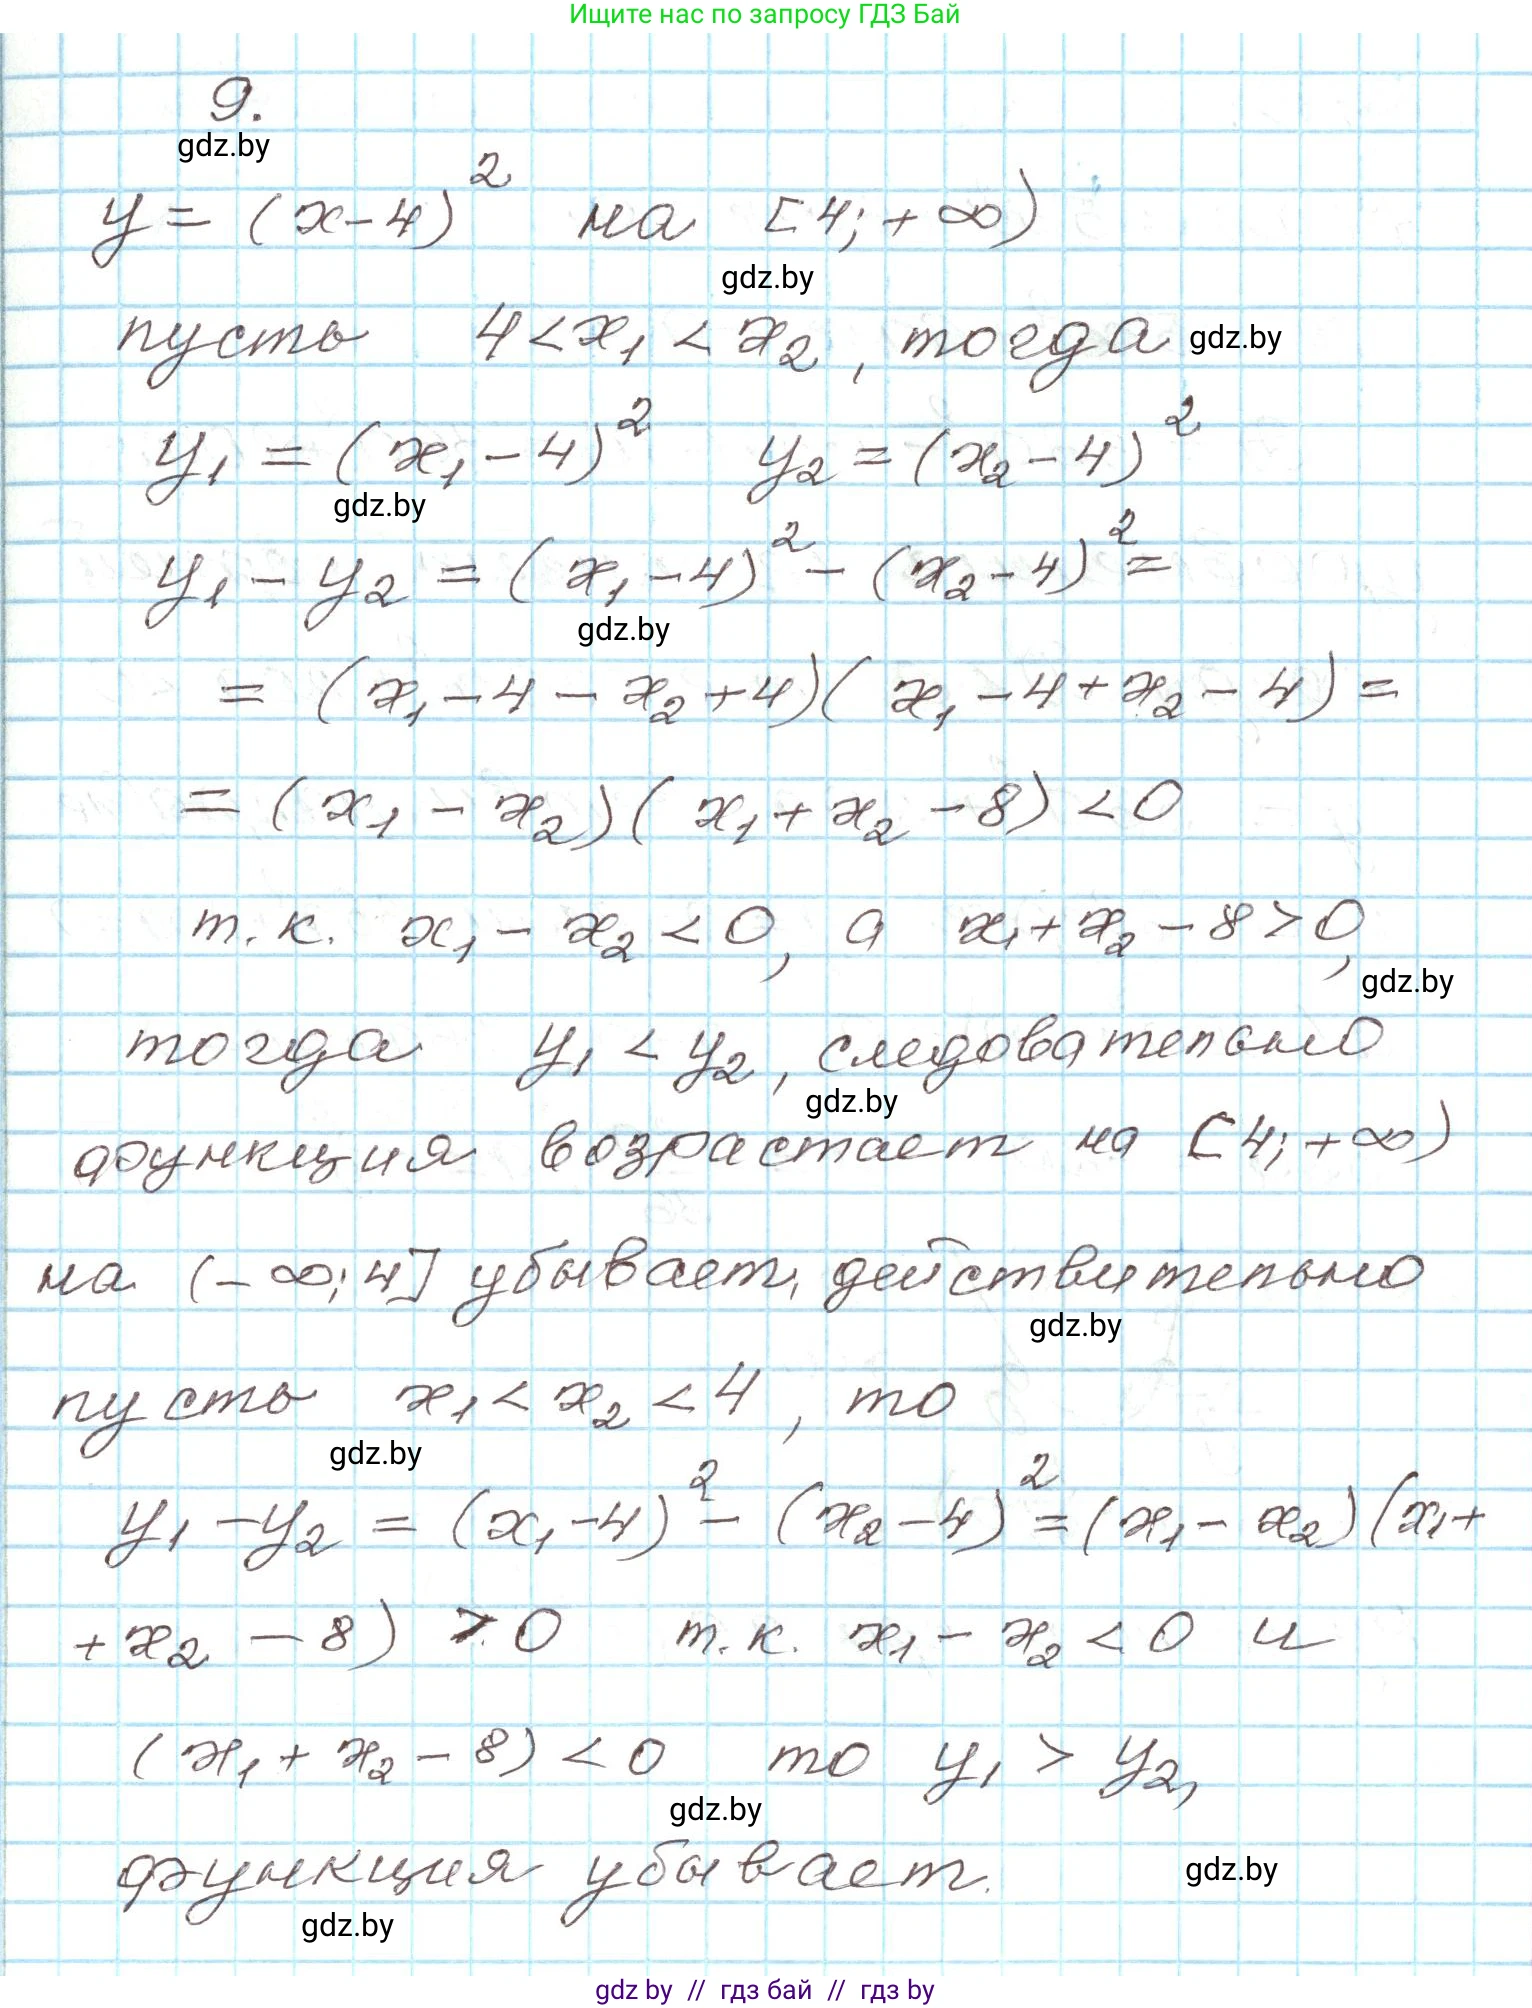 Ищите нас по запросу ГДЗ Бай
9.
gdz.by
y = (x-4)² на [4; +∞)
gdz.by
пусть 4 < x₁ < x₂, тогда gdz.by
y₁ = (x₁-4)² y₂ = (x₂-4)²
gdz.by
y₁ - y₂ = (x₁-4)² - (x₂-4)² =
gdz.by
= (x₁-4-x₂+4)(x₁-4+x₂-4) =
= (x₁ - x₂)(x₁+x₂-8) < 0
т.к. x₁ - x₂ < 0, а x₁+x₂-8>0,
gdz.by
тогда y₁ < y₂, следовательно
gdz.by
функция возрастает на [4; +∞)
на (-∞; 4] убывает, действительно
gdz.by
пусть x₁ < x₂ < 4, то
gdz.by
y₁ - y₂ = (x₁-4)² - (x₂-4)² = (x₁ - x₂)(x₁+
+x₂ - 8) > 0 т.к. x₁ - x₂ < 0 и
(x₁ + x₂ - 8) < 0 то y₁ > y₂,
gdz.by
функция убывает. gdz.by
gdz.by
gdz by // гдз бай // гдз by